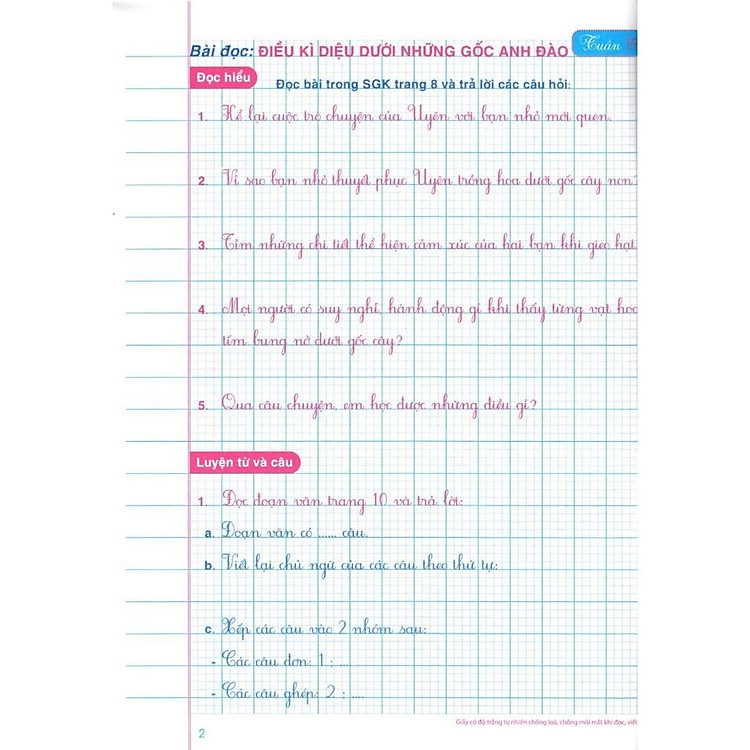 Bài đọc: ĐIỀU KÌ DIỆU DƯỚI NHỮNG GỐC ANH ĐÀO
Tuần
Đọc hiểu
Đọc bài trong SGK trang 8 và trả lời các câu hỏi:
1. Kể lại cuộc trò chuyện của Uyên với bạn nhỏ mới quen.
2. Vì sao bạn nhỏ thuyết phục Uyên trồng hoa dưới gốc cây non?
3. Tìm những chi tiết thể hiện cảm xúc của hai bạn khi gieo hạt
4. Mọi người có suy nghĩ, hành động gì khi thấy từng vạt hoa
tím bung nở dưới gốc cây?
5. Qua câu chuyện, em học được những điều gì?
Luyện từ và câu
1. Đọc đoạn văn trang 10 và trả lời:
a. Đoạn văn có ...... câu.
b. Viết lại chủ ngữ của các câu theo thứ tự:
c. Xếp các câu vào 2 nhóm sau:
- Các câu đơn: 1 ; ....
- Các câu ghép: 2 ; ....
Giấy có độ trắng tự nhiên chống loá, chống mỏi mắt khi đọc, viết
2